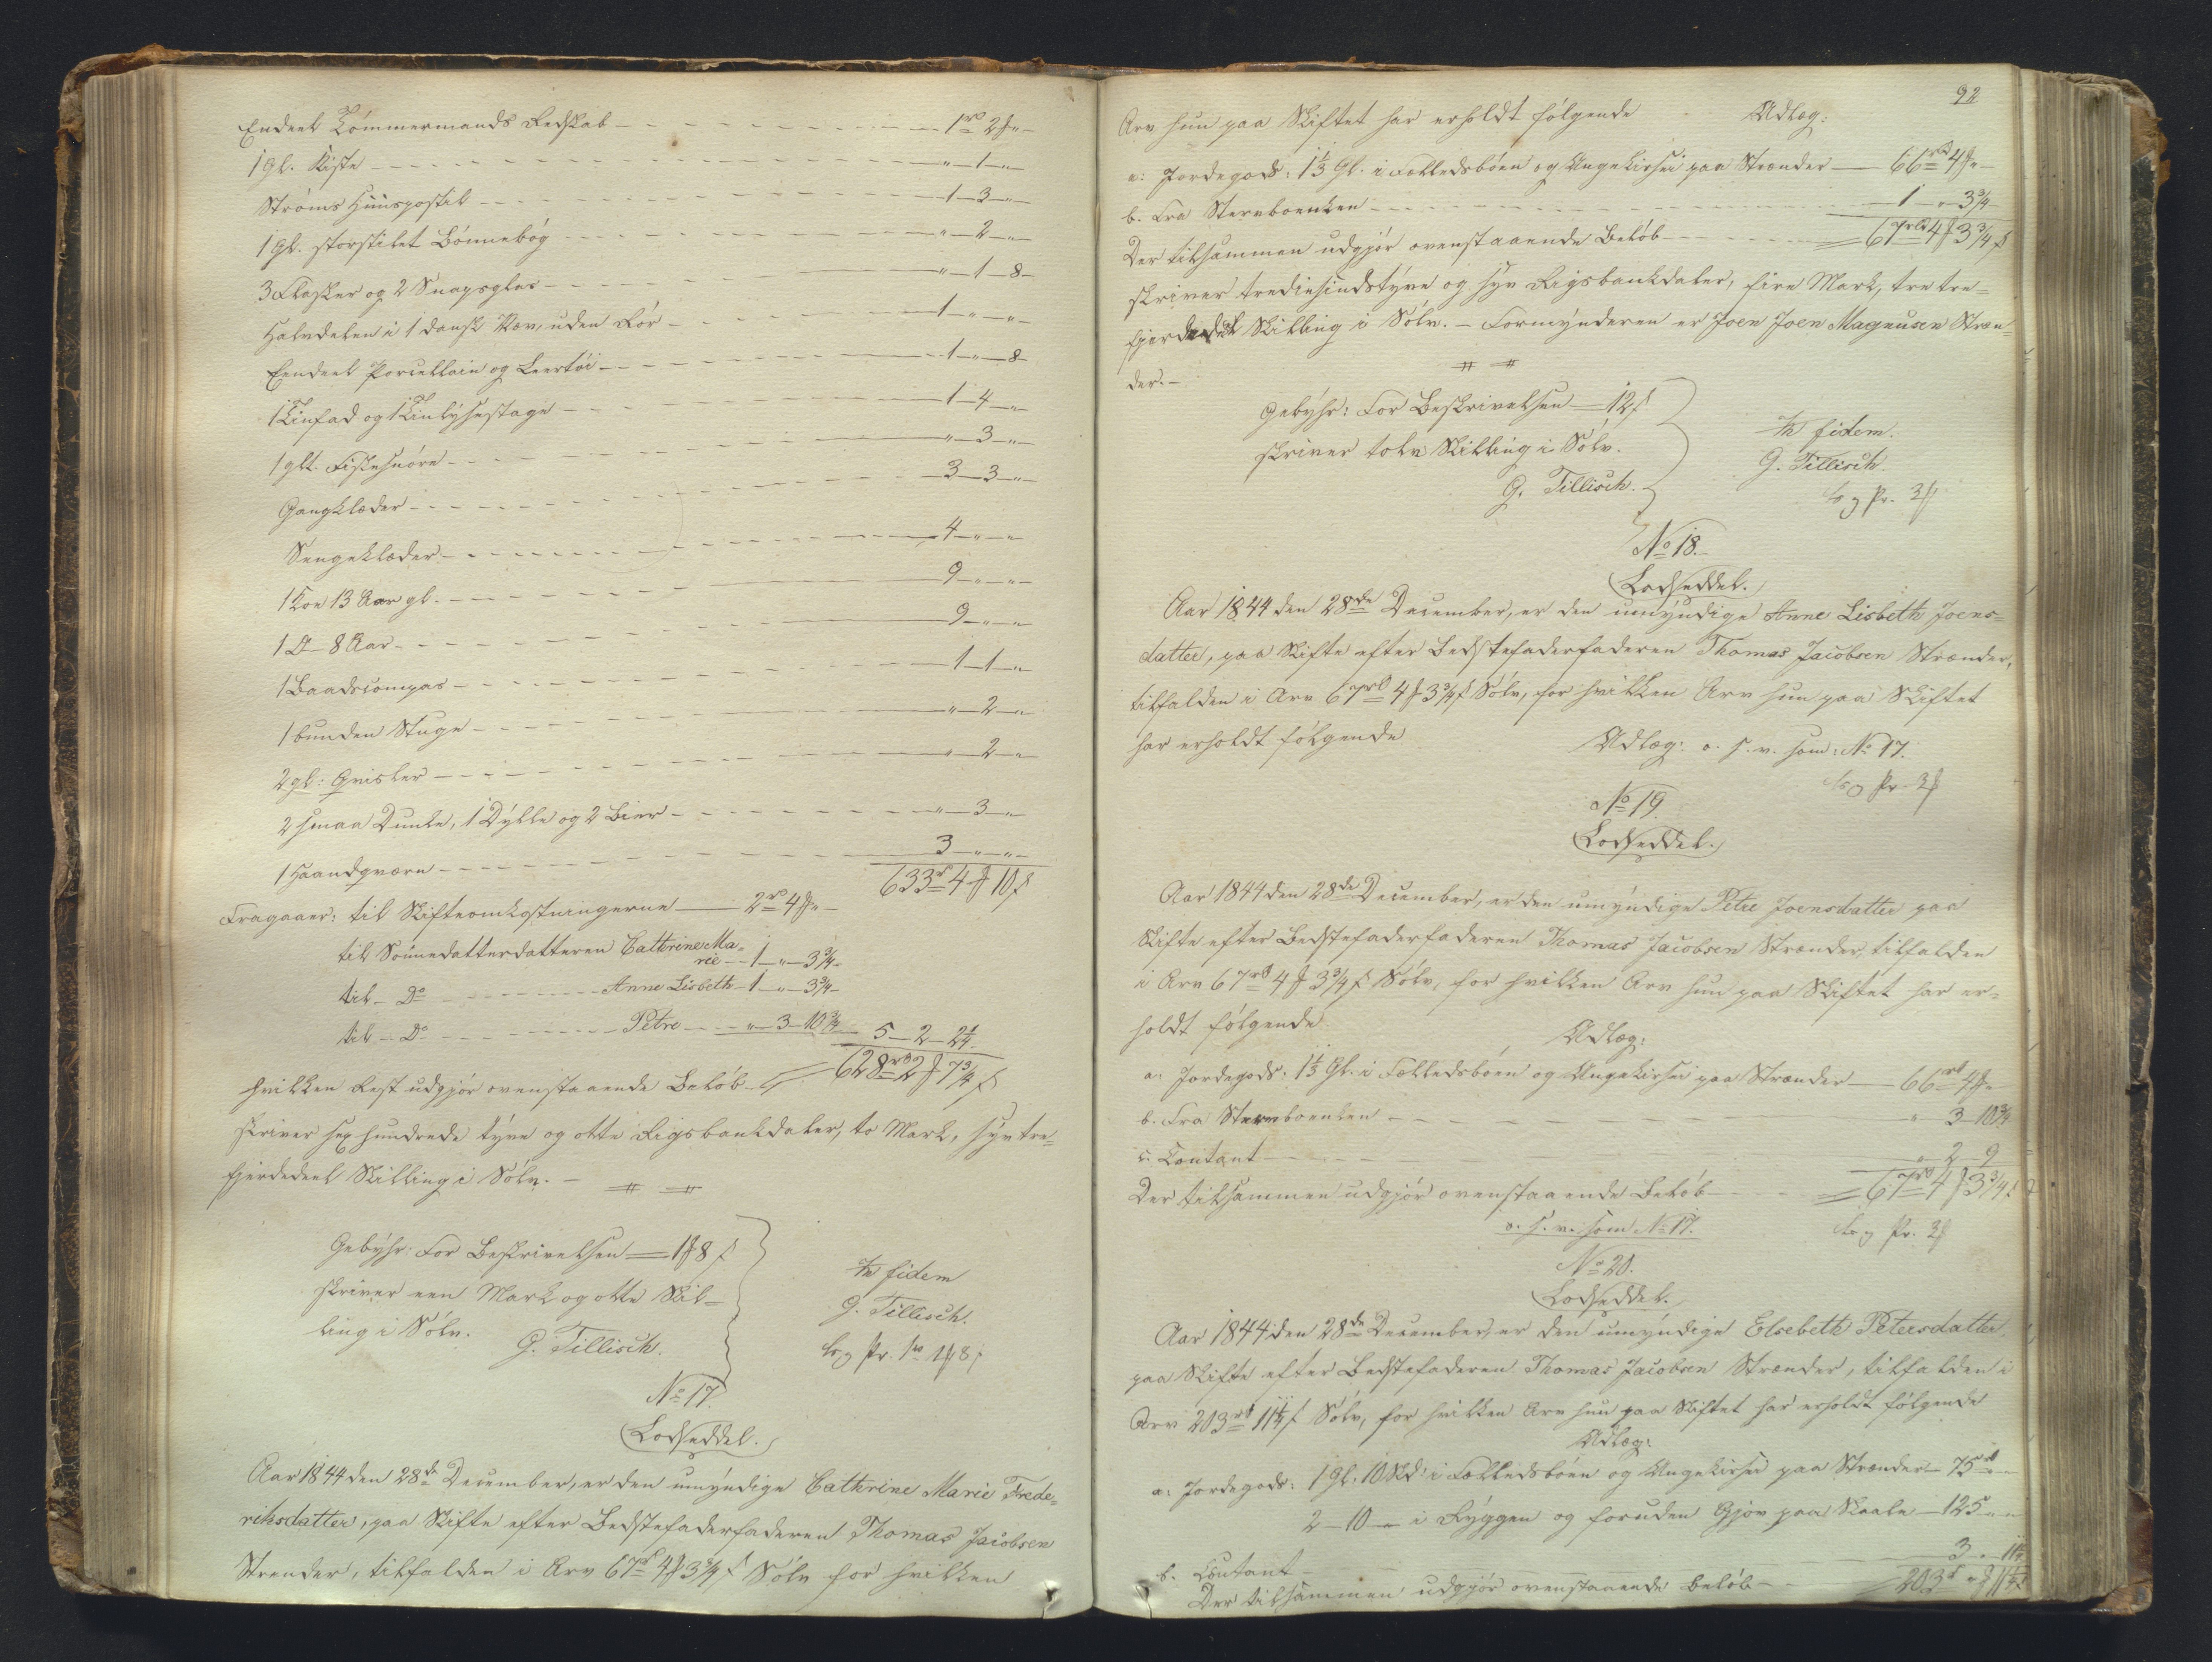 Endeel Tømmermands Redskab — 1 rd 2 ₰ „
1 gl. Kiste — „ — 1 — „
Strøms Huuspostil — 1 — 3 — „
1 gl. storstilet Bønnebog — „ — 2 — „
3 Flasker og 2 Snapsglas — „ — 1 — 8
Halvdelen i 1 dansk Væv, uden Rør — 1 — „ — „
Eendeel Porcellain og Leertøi — 1 — „ — 8
1 Tinfad og 1 Tinlysestage — 1 — 4 — „
1 glt. Fiskesnøre — „ — 3 — „
Gangklæder — 3 — 3 — „
Sengeklæder — 4 — „ — „
1 Koe 13 Aar gl. — 9 — „ — „
1 Do 8 Aar — 9 — „ — „
1 Baadscompas — 1 — 1 — „
1 bunden Stuge — „ — 2 — „
2 gl: Grisler — „ — 2 — „
2 smaa Dunke, 1 Dylle og 2 Bier — „ — 3 — „
1 Haandqværn — 3 — „ — „
633 rd 4 ₰ 10 s
Fragaaer: til Skifteomkostningerne — 2 rd 4 ₰ „
til Sønnedatterdatteren Cathrine Ma=
rie — 1 — „ — 3¾
til — Do — Anne Lisbeth — 1 — „ — 3¾
til — Do — Petre — „ — 3 — 10¾ 5 — 2 — 2¼
hvilken Rest udgjør ovenstaaende Beløb — 628 rd 2 ₰ 7¾ s
skriver sex hundrede tyve og otte Rigsbankdaler, to Mark, syv tre=
fjerdedeel Skilling i Sølv. —
Gebyhr: For Beskrivelsen — 1 ₰ 8 s
skriver een Mark og otte Skil=
ling i Sølv.
G. Tillisch.
In fidem
G. Tillisch.
No 17.
Lodseddel.
Aar 1844 den 28de December, er den umyndige Cathrine Marie Frede=
riksdatter, paa Skifte efter Bedstefaderfaderen Thomas Jacobsen
Strender, tilfalden i Arv 67 rd 4 ₰ 3¾ s Sølv for hvilken
92
Arv hun paa Skiftet har erholdt følgende Udlæg:
a: Jordegods: 1⅓ Gl. i Fælledsbøen og Ungekirsei paa Strænder — 66 rd 4 ₰ „
b. Fra Stervboenken — 1 — „ — 3¾
Der tilsammen udgjør ovenstaaende Beløb — 67 rd 4 ₰ 3¾ s
skriver tredsindstyve og syv Rigsbankdaler, fire Mark, tre tre=
fjerdedeel Skilling i Sølv. — Formynderen er Joen Joen Magnusen Stræn=
der. —
Gebyhr: For Beskrivelsen — 12 s
skriver tolv Skilling i Sølv.
G. Tillisch.
In fidem.
G. Tillisch.
No 18.
Lodseddel.
Aar 1844 den 28de December, er den umyndige Anne Lisbeth Joens=
datter, paa Skifte efter Bedstefaderfaderen Thomas Jacobsen Strænder,
tilfalden i Arv 67 rd 4 ₰ 3¾ s Sølv, for hvilken Arv hun paa Skiftet
har erholdt følgende Udlæg: o. s. v. som: No 17.
No 19.
Lodseddel.
Aar 1844 den 28de December, er den umyndige Petre Joensdatter paa
Skifte efter Bedstefaderfaderen Thomas Jacobsen Strænder, tilfalden
i Arv 67 rd 4 ₰ 3¾ s Sølv, for hvilken Arv hun paa Skiftet har er=
holdt følgende
Udlæg:
a: Jordegods: 1⅓ Gl. i Fælledsbøen og Ungekirsei paa Strænder — 66 rd 4 ₰ „
b. Fra Stervboenken — „ 3 — 10¾
c. Contant — „ 2 — 9
Der tilsammen udgjør ovenstaaende Beløb — 67 rd 4 ₰ 3¾ s
o. s. v. som No 17.
No 20.
Lodseddel.
Aar 1844 den 28de December, er den umyndige Elsebeth Petersdatter,
paa Skifte efter Bedstefaderen Thomas Jacobsen Strænder, tilfalden i
Arv 203 rd 11¼ s Sølv, for hvilken Arv hun paa Skiftet har erholdt følgende
Udlæg:
a: Jordegods: 1 Gl. 10 Skd: i Fælledsbøen og Ungekirsei paa Strænder — 75 rd „ „
2 — 10 — „ i Ryggen og foruden Gjøv paa Skaale — 125 „ „
b. Contant — 3 „ 11¼
Der tilsammen udgjør ovenstaaende Beløb — 203 rd „ ₰ 11¼ s